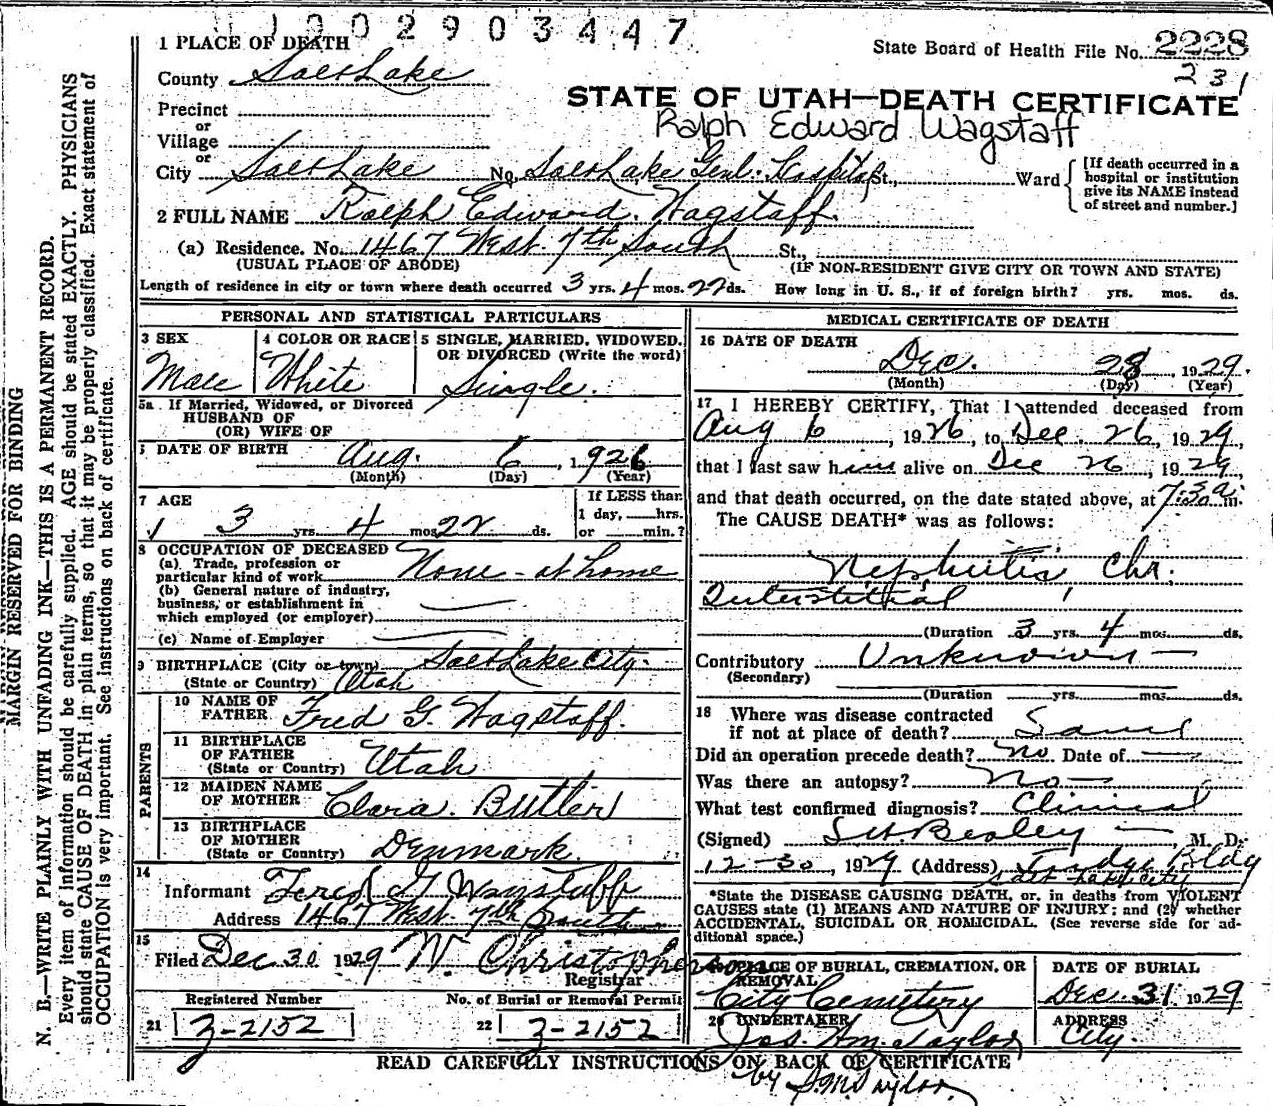 1 1 0 0 2 9 0 3 4 4 7
State Board of Health File No. 2228
231
1 PLACE OF DEATH
County Salt Lake
STATE OF UTAH—DEATH CERTIFICATE
Ralph Edward Wagstaff
Precinct
or
Village
or
City Salt Lake No. Salt Lake Genl. Hospital St., Ward
[If death occurred in a
hospital or institution
give its NAME instead
of street and number.]
2 FULL NAME Ralph Edward. Wagstaff.
(a) Residence. No. 1467 West 7th South St.,
(USUAL PLACE OF ABODE) (IF NON-RESIDENT GIVE CITY OR TOWN AND STATE)
Length of residence in city or town where death occurred 3 yrs. 4 mos. 22 ds. How long in U. S., if of foreign birth? yrs. mos. ds.
PERSONAL AND STATISTICAL PARTICULARS
3 SEX 4 COLOR OR RACE 5 SINGLE, MARRIED, WIDOWED,
OR DIVORCED (Write the word)
Male White Single.
5a If Married, Widowed, or Divorced
HUSBAND OF
(OR) WIFE OF
DATE OF BIRTH Aug. 6, 1926
(Month) (Day) (Year)
7 AGE If LESS than
1 day, hrs.
3 yrs. 4 mos. 22 ds. or min.?
8 OCCUPATION OF DECEASED
(a) Trade, profession or
particular kind of work None - at home
(b) General nature of industry,
business, or establishment in
which employed (or employer)
(c) Name of Employer
9 BIRTHPLACE (City or town) Salt Lake City.
(State or Country) Utah
PARENTS
10 NAME OF
FATHER Fred G. Wagstaff.
11 BIRTHPLACE
OF FATHER
(State or Country) Utah
12 MAIDEN NAME
OF MOTHER Clara. Butler
13 BIRTHPLACE
OF MOTHER
(State or Country) Denmark.
14
Informant Fred G Wagstaff
Address 1467 West 7th South
15
Filed Dec 30 1929 W. Christopherson
Registrar
Registered Number No. of Burial or Removal Permit
21 3-2152 22 3-2152
MEDICAL CERTIFICATE OF DEATH
16 DATE OF DEATH
Dec. 28, 1929.
(Month) (Day) (Year)
17 I HEREBY CERTIFY, That I attended deceased from
Aug 6, 1926, to Dec. 26, 1929,
that I last saw him alive on Dec 26, 1929,
and that death occurred, on the date stated above, at 7:30 a. m.
The CAUSE DEATH* was as follows:
Nephritis Chr.
Interstitial
(Duration 3 yrs. 4 mos. ds.
Contributory Unknown —
(Secondary)
(Duration yrs. mos. ds.
18 Where was disease contracted
if not at place of death? Same
Did an operation precede death? No. Date of
Was there an autopsy? No —
What test confirmed diagnosis? Clinical
(Signed) M. D.
12-30, 1929 (Address) Bldg
Salt Lake City
*State the DISEASE CAUSING DEATH, or, in deaths from VIOLENT
CAUSES state (1) MEANS AND NATURE OF INJURY; and (2) whether
ACCIDENTAL, SUICIDAL OR HOMICIDAL. (See reverse side for ad-
ditional space.)
PLACE OF BURIAL, CREMATION, OR
REMOVAL DATE OF BURIAL
City Cemetery Dec. 31 1929
20 UNDERTAKER ADDRESS
Jos. Wm. Taylor City.
READ CAREFULLY INSTRUCTIONS ON BACK OF CERTIFICATE
by S.M. Taylor.
MARGIN RESERVED FOR BINDING
N. B.—WRITE PLAINLY WITH UNFADING INK—THIS IS A PERMANENT RECORD.
Every item of information should be carefully supplied. AGE should be stated EXACTLY. PHYSICIANS
should state CAUSE OF DEATH in plain terms, so that it may be properly classified. Exact statement of
OCCUPATION is very important. See instructions on back of certificate.